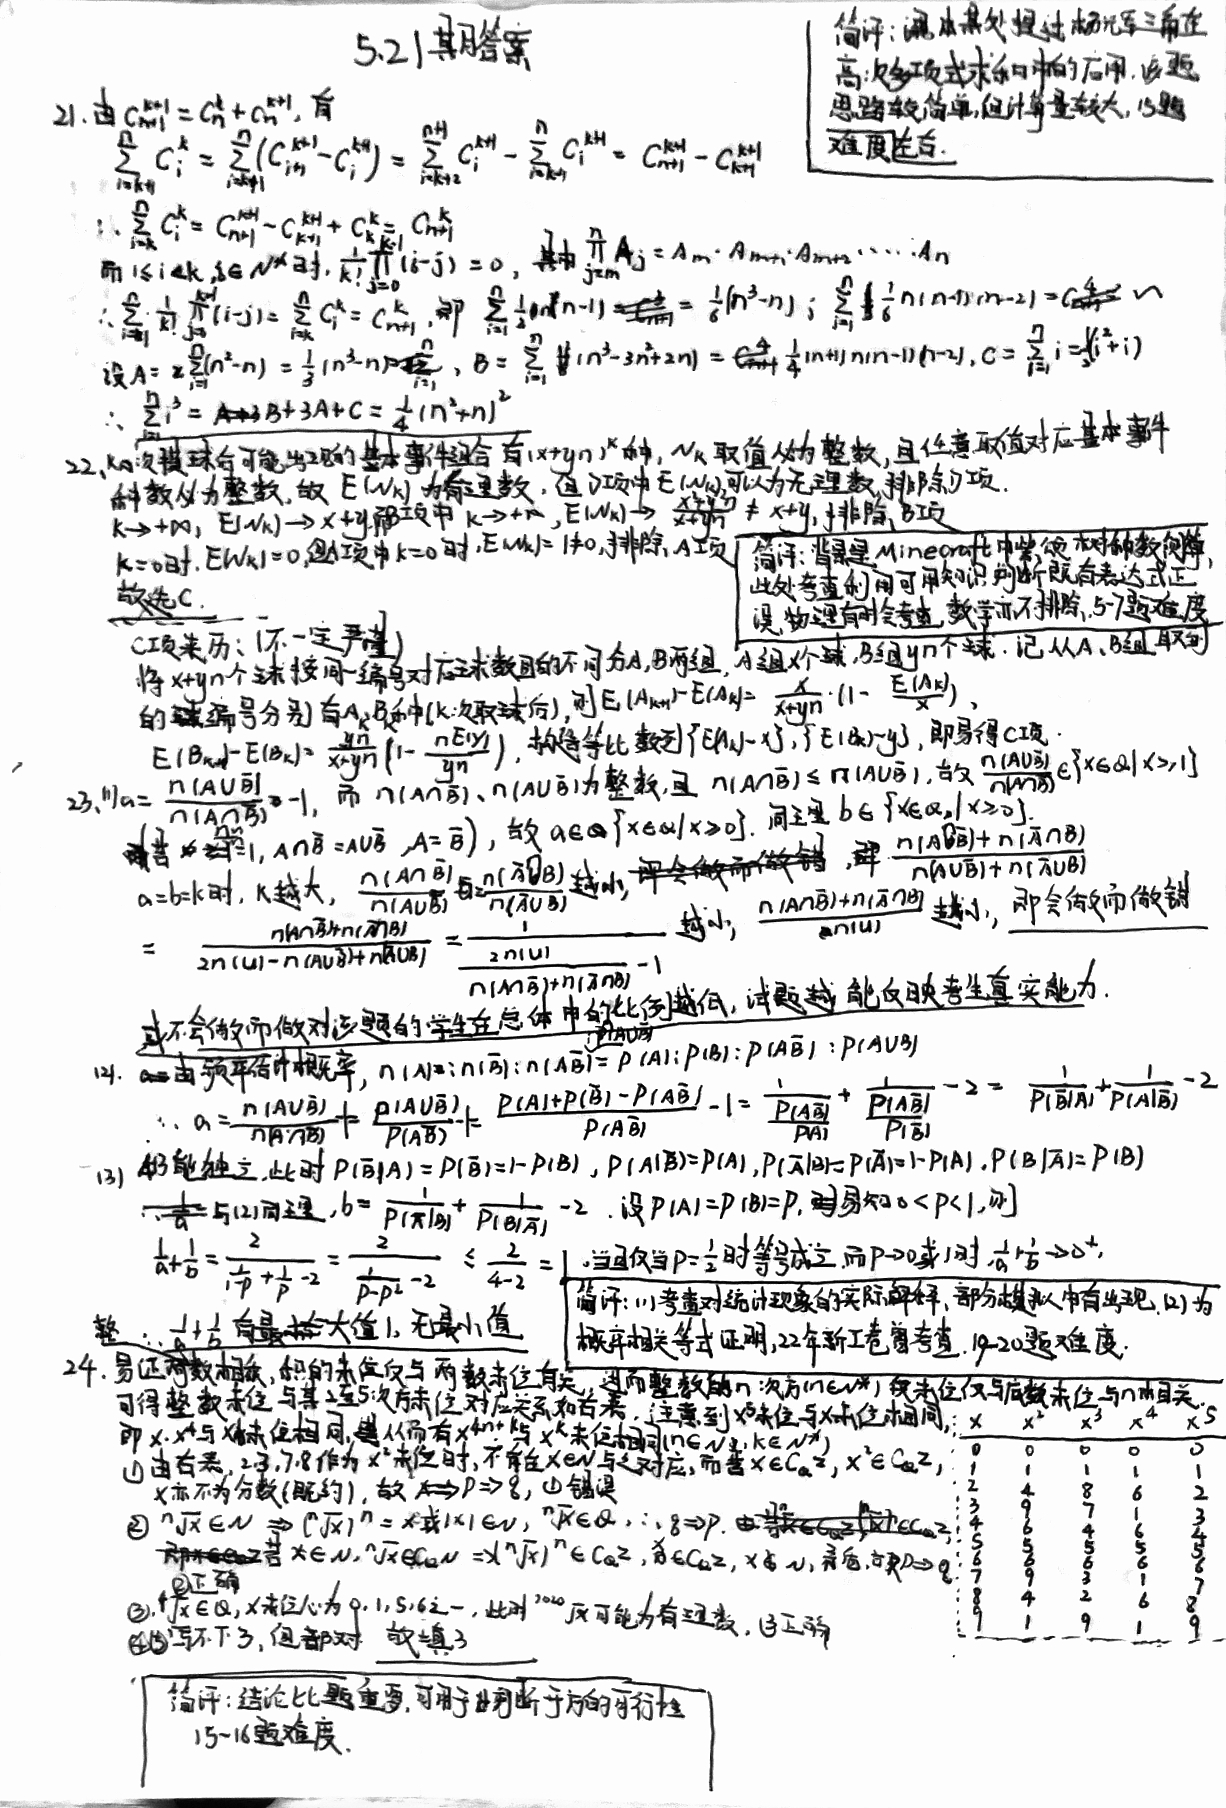 5.21其月答案
简评:源于某处提过杨元三角在
高次多项式求和中的应用.该题
思路较简单,但计算量较大,15题
难度左右.
21.由C_{n+1}^{k+1}=C_n^k+C_n^{k+1},有
\sum_{i=k+1}^{n}C_i^k=\sum_{i=k+1}^{n}(C_{i+1}^{k+1}-C_i^{k+1})=\sum_{i=k+2}^{n+1}C_i^{k+1}-\sum_{i=k+1}^{n}C_i^{k+1}=C_{n+1}^{k+1}-C_{k+1}^{k+1}
∴\sum_{i=k}^{n}C_i^k=C_{n+1}^{k+1}-C_{k+1}^{k+1}+C_k^k=C_{n+1}^{k}
而1≤i<k,i∈N*时,\frac{1}{k!}\prod_{j=0}^{k-1}(i-j)=0,其中\prod_{j=m}^{n}A_j=A_m·A_{m+1}·A_{m+2}·····A_n
∴\sum_{i=1}^{n}\frac{1}{k!}\prod_{j=0}^{k-1}(i-j)=\sum_{i=k}^{n}C_i^k=C_{n+1}^{k},即\sum_{i=1}^{n}\frac{1}{2}n(n-1)=\frac{1}{6}(n^3-n);\sum_{i=1}^{n}\frac{1}{6}n(n-1)(n-2)=
设A=\sum_{i=1}^{n}(n^2-n)=\frac{1}{3}(n^3-n),B=\sum_{i=1}^{n}(n^3-3n^2+2n)=\frac{1}{4}(n+1)n(n-1)(n-2),C=\sum_{i=1}^{n}i=\frac{1}{2}(i^2+i)
∴\sum_{i=1}^{n}i^3=B+3A+C=\frac{1}{4}(n^2+n)^2
22.k次摸球后可能出现的基本事件组合有(x+yn)^k种,N_k取值必为整数,且任意取值对应基本事件
种数必为整数,故E(N_k)为有理数.但D项中E(N_k)可以为无理数,排除D项.
k→+∞,E(N_k)→x+y,而B项中k→+∞,E(N_k)→\frac{x^2+y^2n}{x+yn}≠x+y,排除B项
k=0时,E(N_k)=0,但A项中k=0时,E(N_k)=1≠0,排除A项
故选C.
简评:背景是Minecraft中
此处考查利用可用知识判断既有表达式正
误,物理有时会考查,数学亦不排除,5-7题难度
C项来历:(不一定严谨)
将x+yn个球按同一编号对应球数目的不同分A,B两组,A组x个球,B组yn个球.记从A、B组取到
的球编号分别有A_k,B_k种(k次取球后),则E(A_{k+1})-E(A_k)=\frac{x}{x+yn}·(1-\frac{E(A_k)}{x}),
E(B_{k+1})-E(B_k)=\frac{yn}{x+yn}(1-\frac{nE(y)}{yn}),构造等比数列{E(A_k)-x},{E(B_k)-y},即易得C项.
23.(1)a=\frac{n(A∪\bar{B})}{n(A∩\bar{B})}-1,而n(A∩\bar{B})、n(A∪\bar{B})为整数,且n(A∩\bar{B})≤n(A∪\bar{B}),故\frac{n(A∪\bar{B})}{n(A∩\bar{B})}∈{x∈Q|x≥1}
=1,A∩\bar{B}=A∪\bar{B},A=\bar{B}),故a∈{x∈Q|x≥0}.同理b∈{x∈Q|x≥0}.
a=b=k时,k越大,\frac{n(A∩\bar{B})}{n(A∪\bar{B})}=\frac{n(\bar{A}∩B)}{n(\bar{A}∪B)}越小,即会做而做错,即\frac{n(A∩\bar{B})+n(\bar{A}∩B)}{n(A∪\bar{B})+n(\bar{A}∪B)}
=\frac{n(A∩\bar{B})+n(\bar{A}∩B)}{2n(U)-n(A∪\bar{B})+n(\bar{A}∪B)}=\frac{1}{\frac{2n(U)}{n(A∩\bar{B})+n(\bar{A}∩B)}-1}越小,\frac{n(A∩\bar{B})+n(\bar{A}∩B)}{n(U)}越小,即会做而做错
或不会做而做对该题的学生在总体中的比例越低,试题越能反映考生真实能力.
(2).由频率估计概率,n(A):n(\bar{B}):n(A\bar{B})=P(A):P(B):P(A\bar{B}):P(A∪B)
:P(A∪\bar{B})
∴a=\frac{n(A∪\bar{B})}{n(A∩\bar{B})}-1=\frac{P(A∪\bar{B})}{P(A\bar{B})}-1=\frac{P(A)+P(\bar{B})-P(A\bar{B})}{P(A\bar{B})}-1=\frac{1}{\frac{P(A\bar{B})}{P(A)}}+\frac{1}{\frac{P(A\bar{B})}{P(\bar{B})}}-2=\frac{1}{P(\bar{B}|A)}+\frac{1}{P(A|\bar{B})}-2
(3)可能独立,此时P(\bar{B}|A)=P(\bar{B})=1-P(B),P(A|\bar{B})=P(A),P(\bar{A}|B)=P(\bar{A})=1-P(A),P(B|\bar{A})=P(B)
与(2)同理,b=\frac{1}{P(\bar{A}|B)}+\frac{1}{P(B|\bar{A})}-2.设P(A)=P(B)=P,易知0<P<1,则
\frac{1}{a}+\frac{1}{b}=\frac{2}{\frac{1}{1-P}+\frac{1}{P}-2}=\frac{2}{\frac{1}{P-P^2}-2}≤\frac{2}{4-2}=1.当且仅当P=\frac{1}{2}时等号成立,而P→0或1时,\frac{1}{a}+\frac{1}{b}→0^+.
∴\frac{1}{a}+\frac{1}{b}有最大值1,无最小值
简评:(1)考查对统计现象的实际解释,部分模拟中有出现.(2)为
概率相关等式证明,22年新I卷曾考查.19-20题难度.
24.易证两数相乘,积的末位仅与两数末位有关,进而整数的n次方(n∈N*)末位仅与底数末位与n相关.
可得整数末位与其2至5次方末位对应关系如右表.注意到x^5末位与x末位相同,
即x·x^4与x末位相同,从而有x^{4n+k}与x^k末位相同(n∈N,k∈N*)
①由右表,2,3,7,8作为x^2末位时,不存在x∈N与之对应,而若x∈C_QZ,x^2∈C_QZ,
x亦不为分数(既约),故P⇒q,①错误
②\sqrt[n]{x}∈N⇒(\sqrt[n]{x})^n=x或|x|∈N,\sqrt[n]{x}∈Q,∴q⇒P.
若x∈N,\sqrt[n]{x}∈C_QN⇒(\sqrt[n]{x})^n∈C_QZ,x∉N,矛盾,故P⇒q
②正确
③.\sqrt[4]{x}∈Q,x末位必为0,1,5,6之一,此时\sqrt[2020]{x}可能为有理数,③正确
④⑤写不下了,但都对 故填3
x x^2 x^3 x^4 x^5
0 0 0 0 0
1 1 1 1 1
2 4 8 6 2
3 9 7 1 3
4 6 4 6 4
5 5 5 5 5
6 6 6 6 6
7 9 3 1 7
8 4 2 6 8
9 1 9 1 9
简评:结论比题重要,可用于判断开方的可行性
15-16题难度.